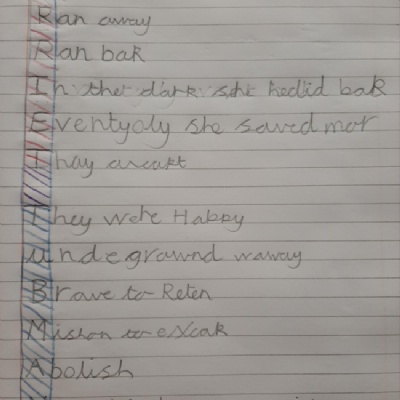 Ran away
Ran bak
In the dark she hedid bak
Eventyoly she saved mor
Thay
They wehe Happy
undegrawnd waway
Brave to Reten
Mishon to
Abolish